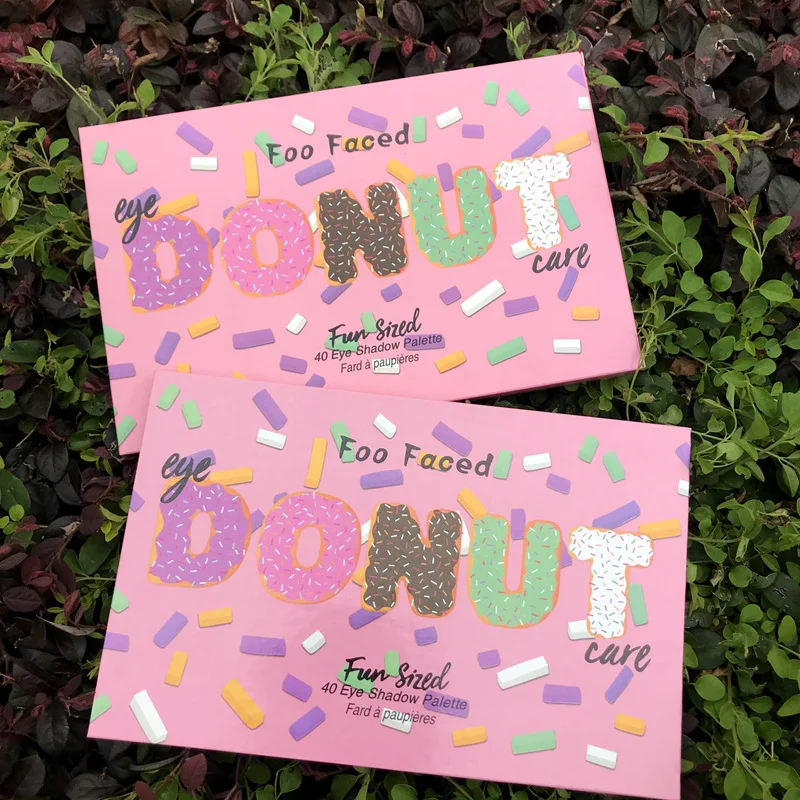 Foo Faced
eye
DONUT
care
Fun Sized
40 Eye Shadow Palette
Fard à paupières
Foo Faced
eye
DONUT
care
Fun Sized
40 Eye Shadow Palette
Fard à paupières